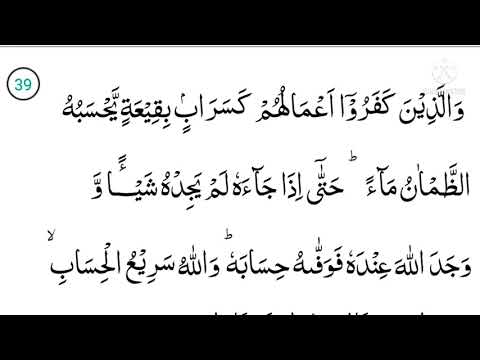 39
وَالَّذِيْنَ كَفَرُوْۤا اَعْمَالُهُمْ كَسَرَابٍۭ بِقِيْعَةٍ يَّحْسَبُهُ
الظَّمْاٰنُ مَآءً ؕ حَتّٰۤى اِذَا جَآءَهٗ لَمْ يَجِدْهُ شَيْـًٔا وَّ
وَجَدَ اللّٰهَ عِنْدَهٗ فَوَفّٰىهُ حِسَابَهٗ ؕ وَاللّٰهُ سَرِيْعُ الْحِسَابِ ۙ